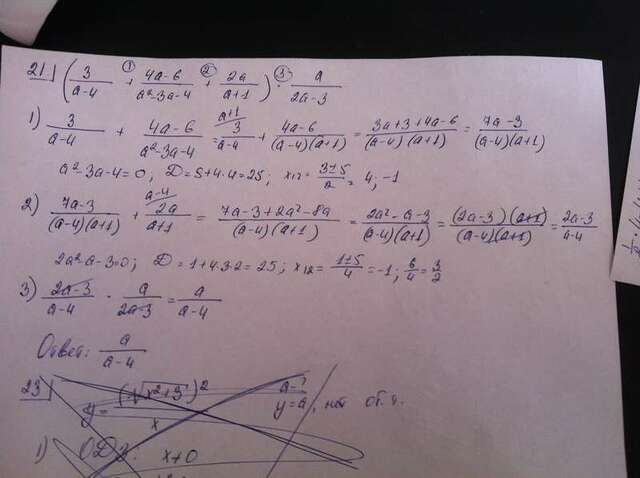 21) (3/(a-4) +① (4a-6)/(a²-3a-4) +② 2a/(a+1)) ·③ a/(2a-3)
1) 3/(a-4) + (4a-6)/(a²-3a-4) = 3^(a+1)/(a-4) + (4a-6)/((a-4)(a+1)) = (3a+3+4a-6)/((a-4)(a+1)) = (7a-3)/((a-4)(a+1))
a²-3a-4=0; D=9+4·4=25; x₁₂ = (3±5)/2 = 4, -1
2) (7a-3)/((a-4)(a+1)) + 2a^(a-4)/(a+1) = (7a-3+2a²-8a)/((a-4)(a+1)) = (2a²-a-3)/((a-4)(a+1)) = ((2a-3)(a+1))/((a-4)(a+1)) = (2a-3)/(a-4)
2a²-a-3=0; D=1+4·3·2=25; x₁₂ = (1±5)/4 = -1; 6/4 = 3/2
3) (2a-3)/(a-4) · a/(2a-3) = a/(a-4)
Ответ: a/(a-4)
23) y = (√(x²+3))²/x a-? y=a, нет об. т.
1) ОДЗ: x≠0